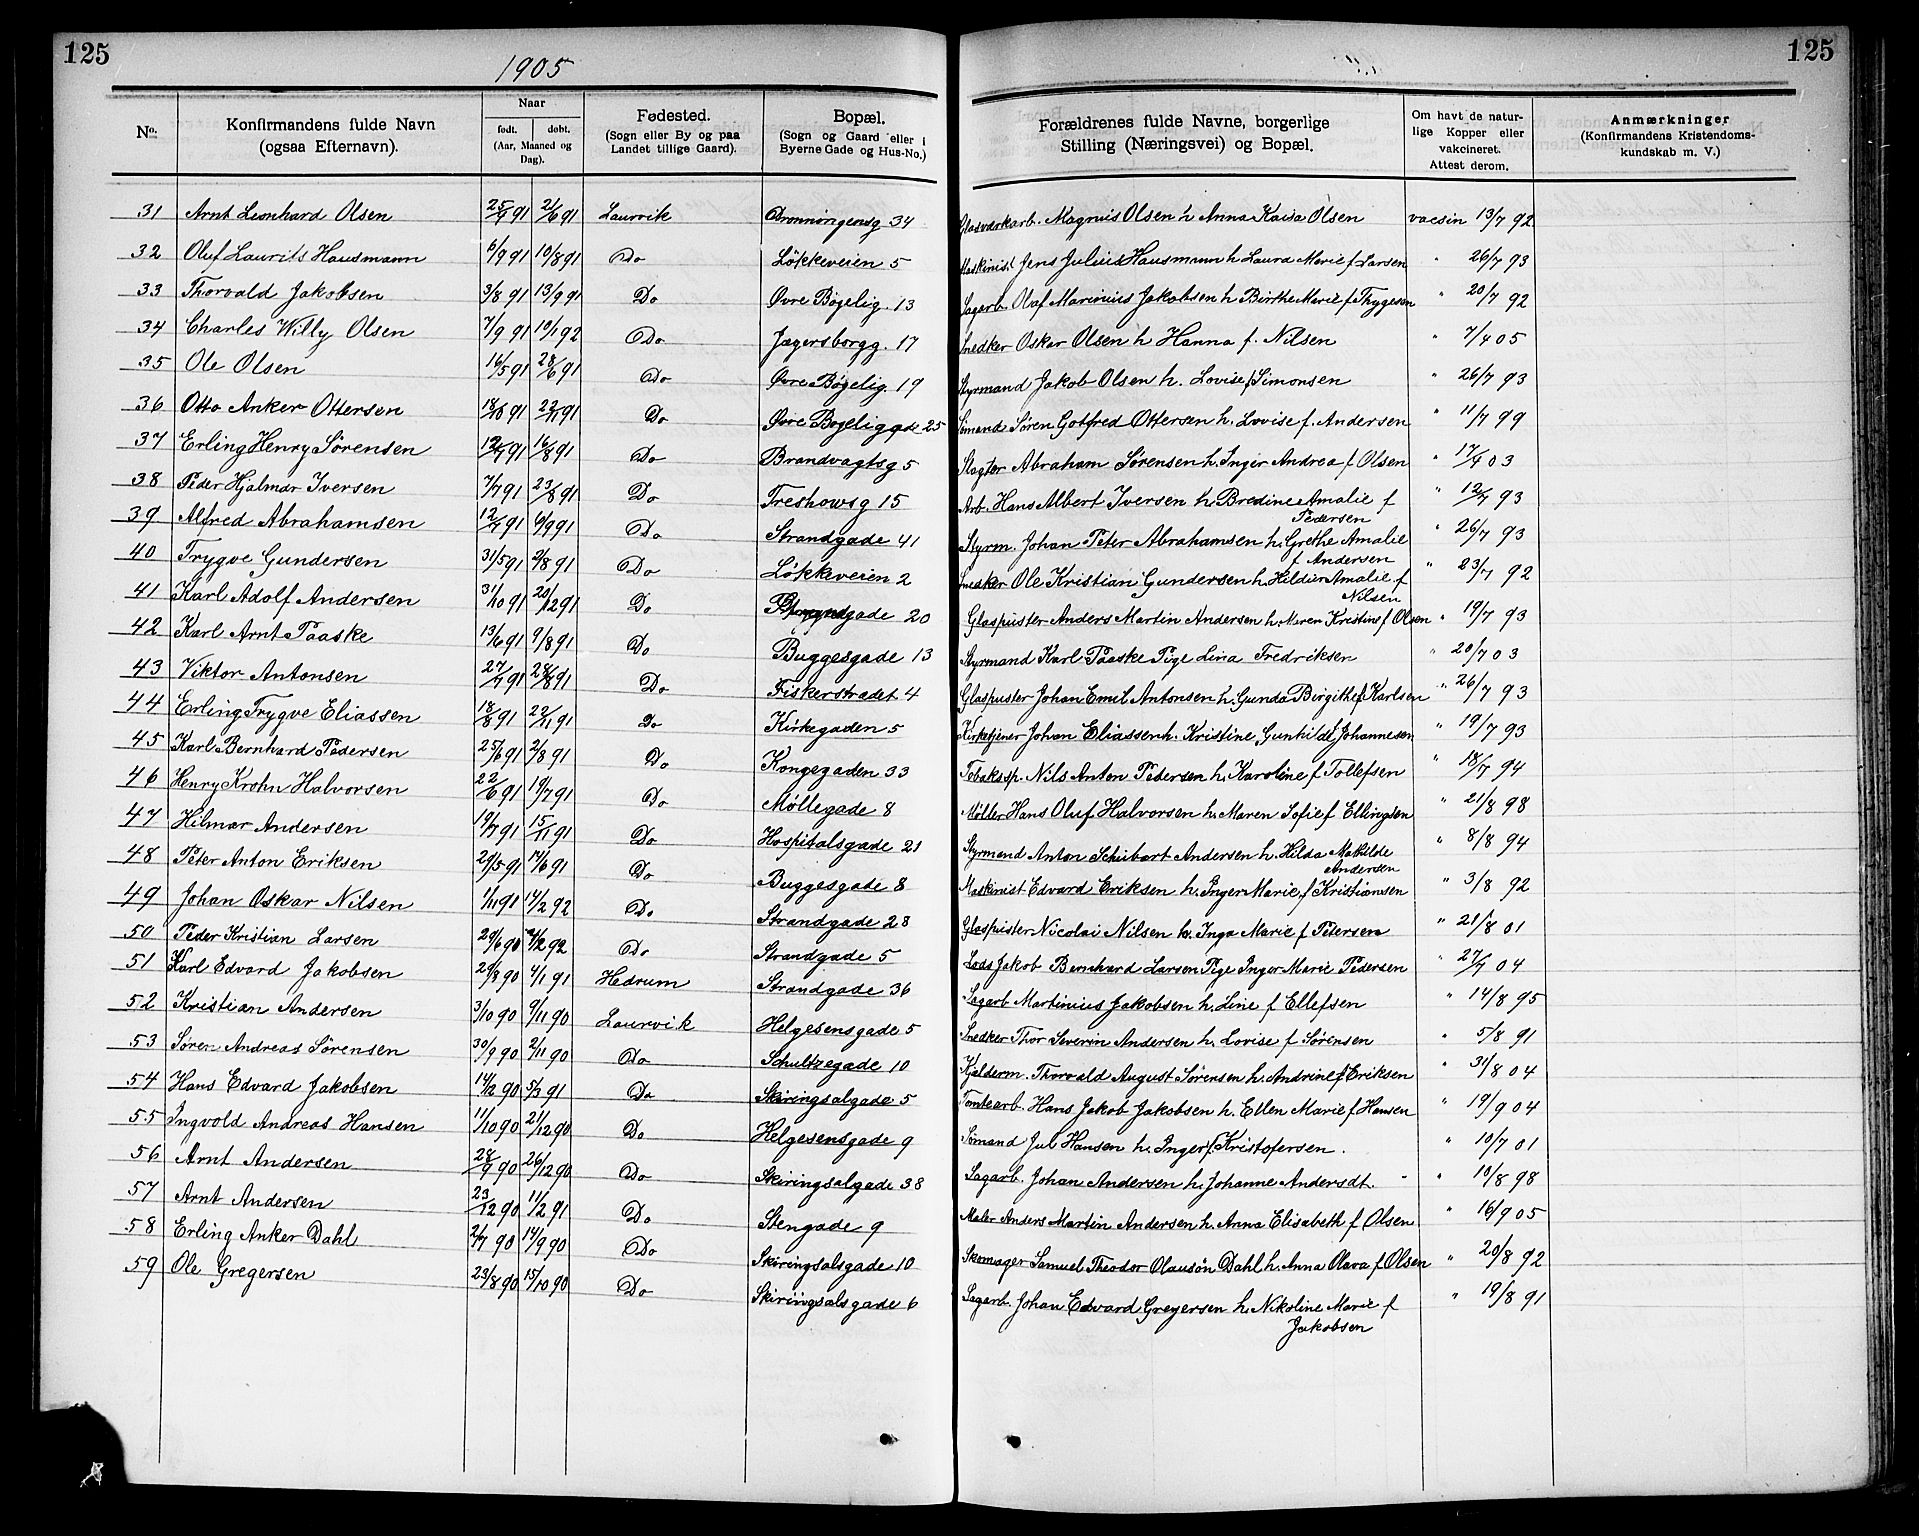 125
1905
125
No. | Konfirmandens fulde Navn (ogsaa Efternavn). | Naar født. | døbt. (Aar, Maaned og Dag). | Fødested. (Sogn eller By og paa Landet tillige Gaard). | Bopæl. (Sogn og Gaard eller i Byerne Gade og Hus-No.) | Forældrenes fulde Navne, borgerlige Stilling (Næringsvei) og Bopæl. | Om havt de naturlige Kopper eller vakcineret. Attest derom. | Anmærkninger (Konfirmandens Kristendomskundskab m. V.)
31 Arnt Leonhard Olsen 25/4 91 21/6 91 Laurvik Dronningensg 34 Glasværkarb. Magnus Olsen h Anna Kaisa Olsen vacsin 13/7 92
32 Oluf Laurits Hausmann 6/9 91 10/8 91 Do Løkkeveien 5 Maskinist Jens Julius Hausmann h Laura Marie f Larsen " 26/7 93
33 Thorvald Jakobsen 3/8 91 13/9 91 Do Øvre Bøgelig. 13 Sagarb. Olaf Marinius Jakobsen h Birthe Marie f Thygesen " 20/7 92
34 Charles Willy Olsen 7/9 91 10/1 92 Do Jægersborgg. 17 Snedker Oskar Olsen h Hanna f. Nilsen " 7/4 05
35 Ole Olsen 16/5 91 28/6 91 Do Øvre Bøgelig. 19 Styrmand Jakob Olsen h. Lovise f Simonsen " 26/7 93
36 Otto Anker Ottersen 18/8 91 22/11 91 Do Øvre Bøgeligade 25 Sømand Søren Gotfred Ottersen h. Lovise f. Andersen " 11/7 99
37 Erling Henry Sørensen 12/7 91 16/8 91 Do Brandvagtsg 5 Slagter Abraham Sørensen h. Inger Andrea f. Olsen " 17/4 03
38 Peder Hjalmar Iversen 7/7 91 23/8 91 Do Treshowsg 15 Arb. Hans Albert Iversen h. Bredine Amalie f
Pedersen " 12/7 93
39 Alfred Abrahamsen 12/7 91 6/9 91 Do Strandgade 41 Styrm. Johan Peter Abrahamsen h. Grethe Amalie
f Andersen " 26/7 93
40 Trygve Gundersen 31/5 91 2/8 91 Do Løkkeveien 2 Snedker Ole Kristian Gundersen h. Hilda Amalie f
Nilsen " 23/7 92
41 Karl Adolf Andersen 31/10 91 20/12 91 Do gade 20 Glaspuster Anders Martin Andersen h. Maren Kristine f Olsen " 19/7 93
42 Karl Arnt Paaske 13/6 91 9/8 91 Do Buggesgade 13 Styrmand Karl Paaske Pige Lina Fredriksen " 20/7 03
43 Viktor Antonsen 27/7 91 28/8 91 Do Fiskerstrædet 4 Glaspuster Johan Emil Antonsen h. Gunda Birgitte f Karlsen " 26/7 93
44 Erling Trygve Eliassen 18/8 91 22/11 91 Do Kirkegaden 5 Kirketjener Johan Eliassen h. Kristine Gunhild f Johannesen " 19/7 93
45 Karl Bernhard Pedersen 25/6 91 2/8 91 Do Kongegaden 33 Tobakssp. Nils Anton Pedersen h. Karoline f Tollefsen " 18/7 94
46 Henry Krohn Halvorsen 22/6 91 19/7 91 Do Møllegade 8 Møller Hans Oluf Halvorsen h. Maren Sofie f Ellingsen " 21/8 98
47 Hilmar Andersen 19/7 91 15/11 91 Do Hospitalsgade 21 Styrmand Anton Schubart Andersen h. Hilda Mathilde
Andersen " 8/8 94
48 Peter Anton Eriksen 29/5 91 17/6 91 Do Buggesgade 8 Maskinist Edvard Eriksen h. Inger Marie f Kristiansen " 3/8 92
49 Johan Oskar Nilsen 1/11 91 14/2 92 Do Strandgade 28 Glaspuster Nicolai Nilsen h. Inga Marie f Petersen " 21/8 01
50 Peder Kristian Larsen 29/6 90 92 Do Strandgade 5 Lods Jakob Bernhard Larsen Pige Inger Marie Pedersen " 27/7 04
51 Karl Edvard Jakobsen 29/3 90 4/1 91 Hedrum Strandgade 36 Sagarb Martinius Jakobsen h. Line f Ellefsen " 14/8 95
52 Kristian Andersen 3/10 90 9/11 90 Laurvik Helgesensgade 5 Snedker Thor Severin Andersen h. Lovise f Sørensen " 5/8 91
53 Søren Andreas Sørensen 30/9 90 2/11 90 Do Schultzegade 10 Kjelderm. Thorvald August Sørensen h. Andrine f Eriksen " 31/8 04
54 Hans Edvard Jakobsen 14/12 90 5/3 91 Do Skiringsalgade 5 Tomtearb. Hans Jakob Jakobsen h. Ellen Marie f Hansen " 19/9 04
55 Ingvold Andreas Hansen 11/10 90 21/12 90 Do Helgesensgade 9 Sømand Jul Hansen h. Inger f. Kristofersen. " 10/7 01
56 Arnt Andersen 28/9 90 26/12 90 Do Skiringsalgade 38 Sagarb. Johan Andersen h. Johanne Andersdt. " 10/8 98
57 Arnt Andersen 23/12 90 11/2 91 Do Stengade 9 Maler Anders Martin Andersen h. Anna Elisabeth f Olsen " 16/9 05
58 Erling Anker Dahl 2/7 90 14/9 90 Do Skiringsalsgade 10 Skomager Samuel Theodor Olausøn Dahl h. Anna Olava f Olsen " 20/8 92
59 Ole Gregersen 23/8 90 15/10 90 Do Skiringsalsgade 6 Sagarb. Johan Edvard Gregersen h. Nikoline Marie f
Jakobsen " 19/8 91